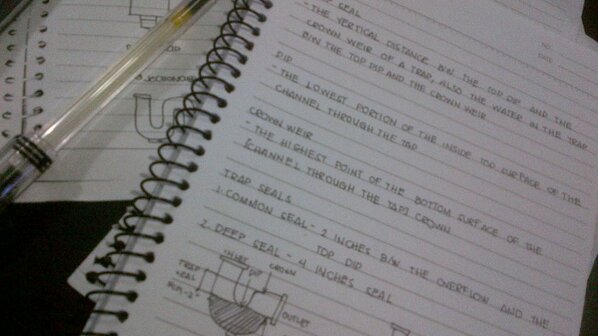 SEAL
- THE VERTICAL DISTANCE B/N THE TOP DIP AND THE
CROWN WEIR OF A TRAP, ALSO THE WATER IN THE TRAP
B/N THE TOP DIP AND THE CROWN WEIR
DIP
- THE LOWEST PORTION OF THE INSIDE TOP SURFACE OF THE
CHANNEL THROUGH THE TAP
CROWN WEIR
- THE HIGHEST POINT OF THE BOTTOM SURFACE OF THE
(CHANNEL THROUGH THE TAP) CROWN
TRAP SEALS
1. COMMON SEAL - 2 INCHES B/N THE OVERFLOW AND THE
TOP DIP
2. DEEP SEAL - 4 INCHES SEAL
INLET
DIP
CROWN
TRAP
SEAL
OUTLET
NO.
DATE